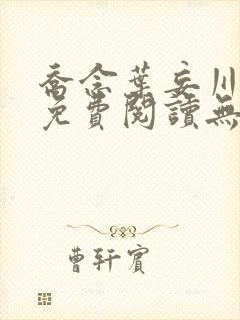 喬念葉妄川
免費閱讀無
曹軒賓